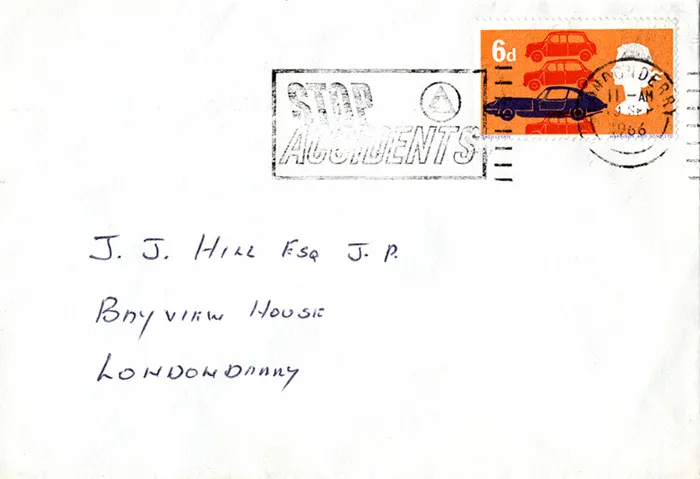 6d
STOP
ACCIDENTS
LONDONDERRY
11 - AM
1966
J. J. HILL ESQ J. P.
BAYVIEW HOUSE
LONDONDERRY